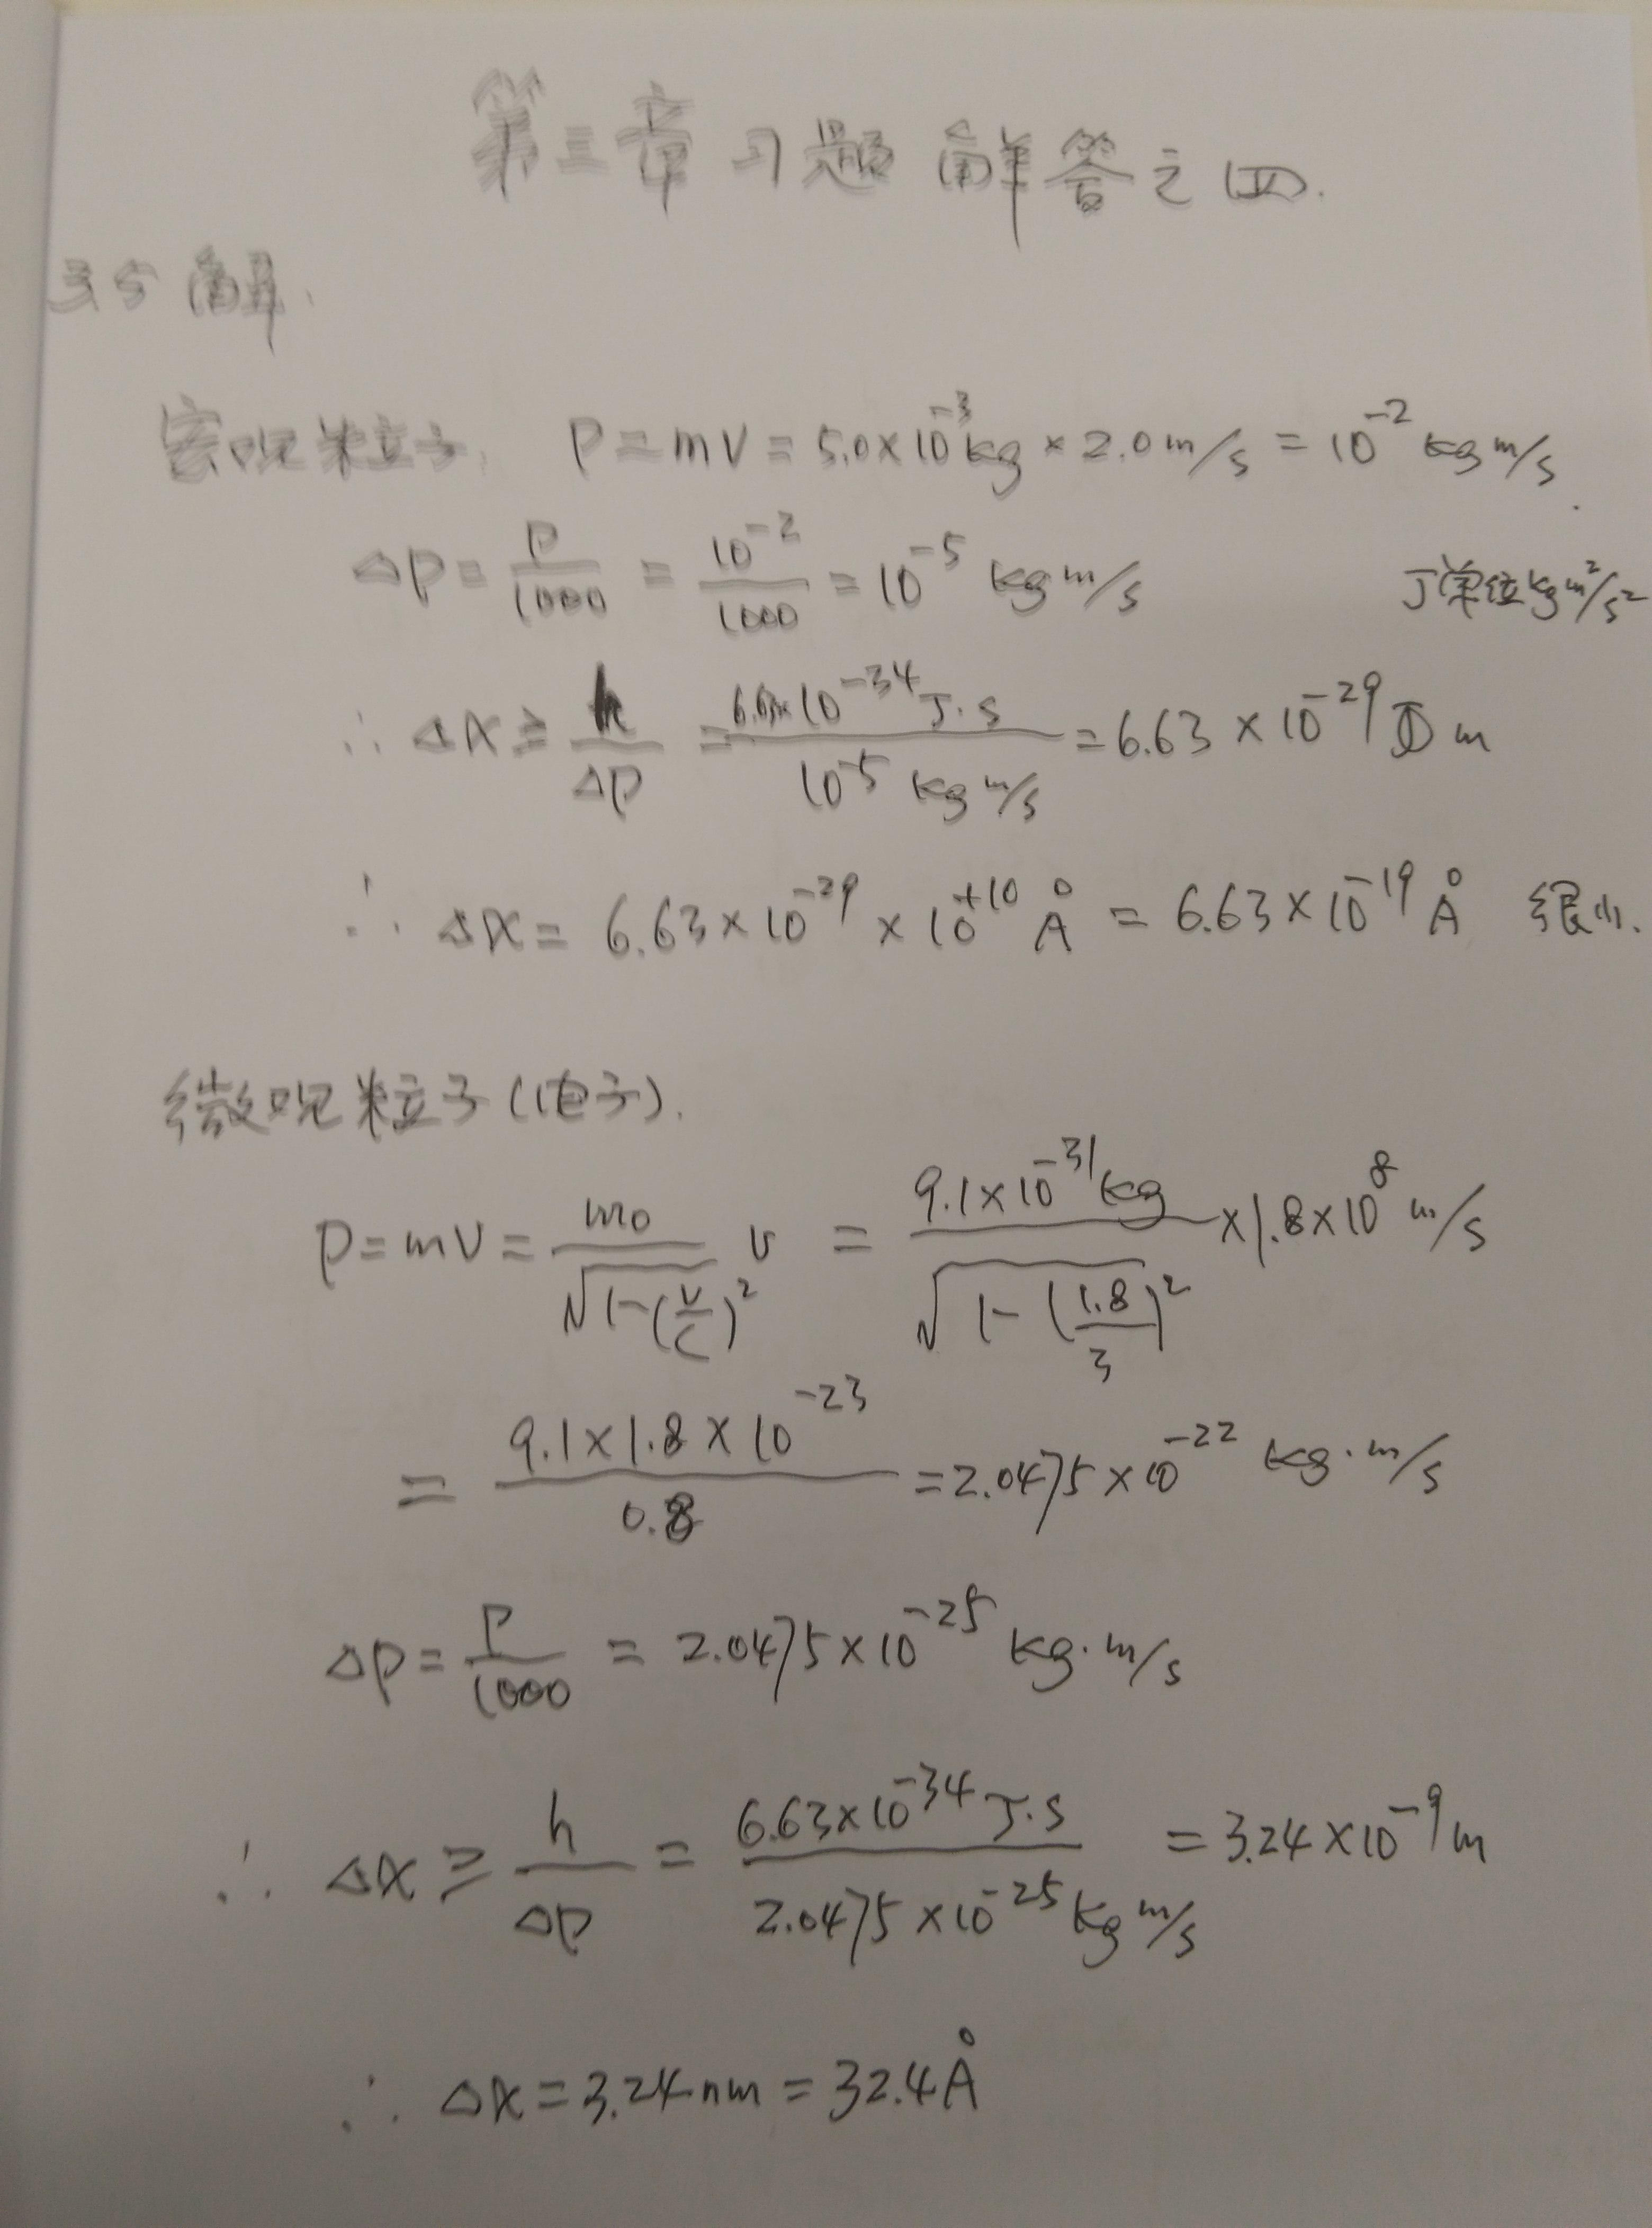 第三章习题解答之四.
35 解.
宏观粒子. P = mV = 5.0×10⁻³kg × 2.0 m/s = 10⁻² kg m/s.
ΔP = P/1000 = 10⁻²/1000 = 10⁻⁵ kg m/s J单位kg m²/s²
∴ ΔX ≥ h/ΔP = 6.63×10⁻³⁴ J·s / 10⁻⁵ kg m/s = 6.63 × 10⁻²⁹ m
∴ ΔX = 6.63×10⁻²⁹ × 10⁺¹⁰ Å = 6.63×10⁻¹⁹ Å 很小.
微观粒子(电子).
P = mV = m₀/√(1-(v/c)²) v = 9.1×10⁻³¹kg/√(1-(1.8/3)²) ×1.8×10⁸ m/s
= 9.1×1.8×10⁻²³/0.8 = 2.0475×10⁻²² kg·m/s
ΔP = P/1000 = 2.0475×10⁻²⁵ kg·m/s
∴ ΔX ≥ h/ΔP = 6.63×10⁻³⁴ J·s / 2.0475×10⁻²⁵ kg m/s = 3.24×10⁻⁹ m
∴ ΔX = 3.24nm = 32.4Å